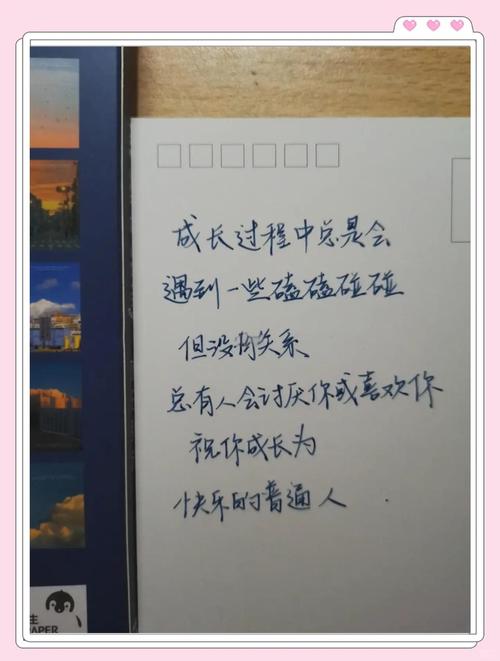 成长过程中总是会
遇到一些磕磕碰碰
但没关系
总有人会讨厌你或喜欢你
祝你成长为
快乐的普通人
生
PAPER